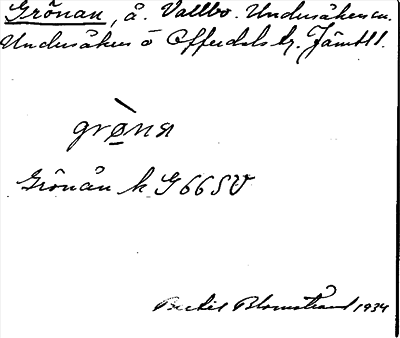 Grönan, å. Vallbo. Undersåkers sn.
Undersåkers o Offerdals tg. Jämtl l.
grø̀nɐn
Grönån k G 66 SV
Bertil Blomstrand 1934